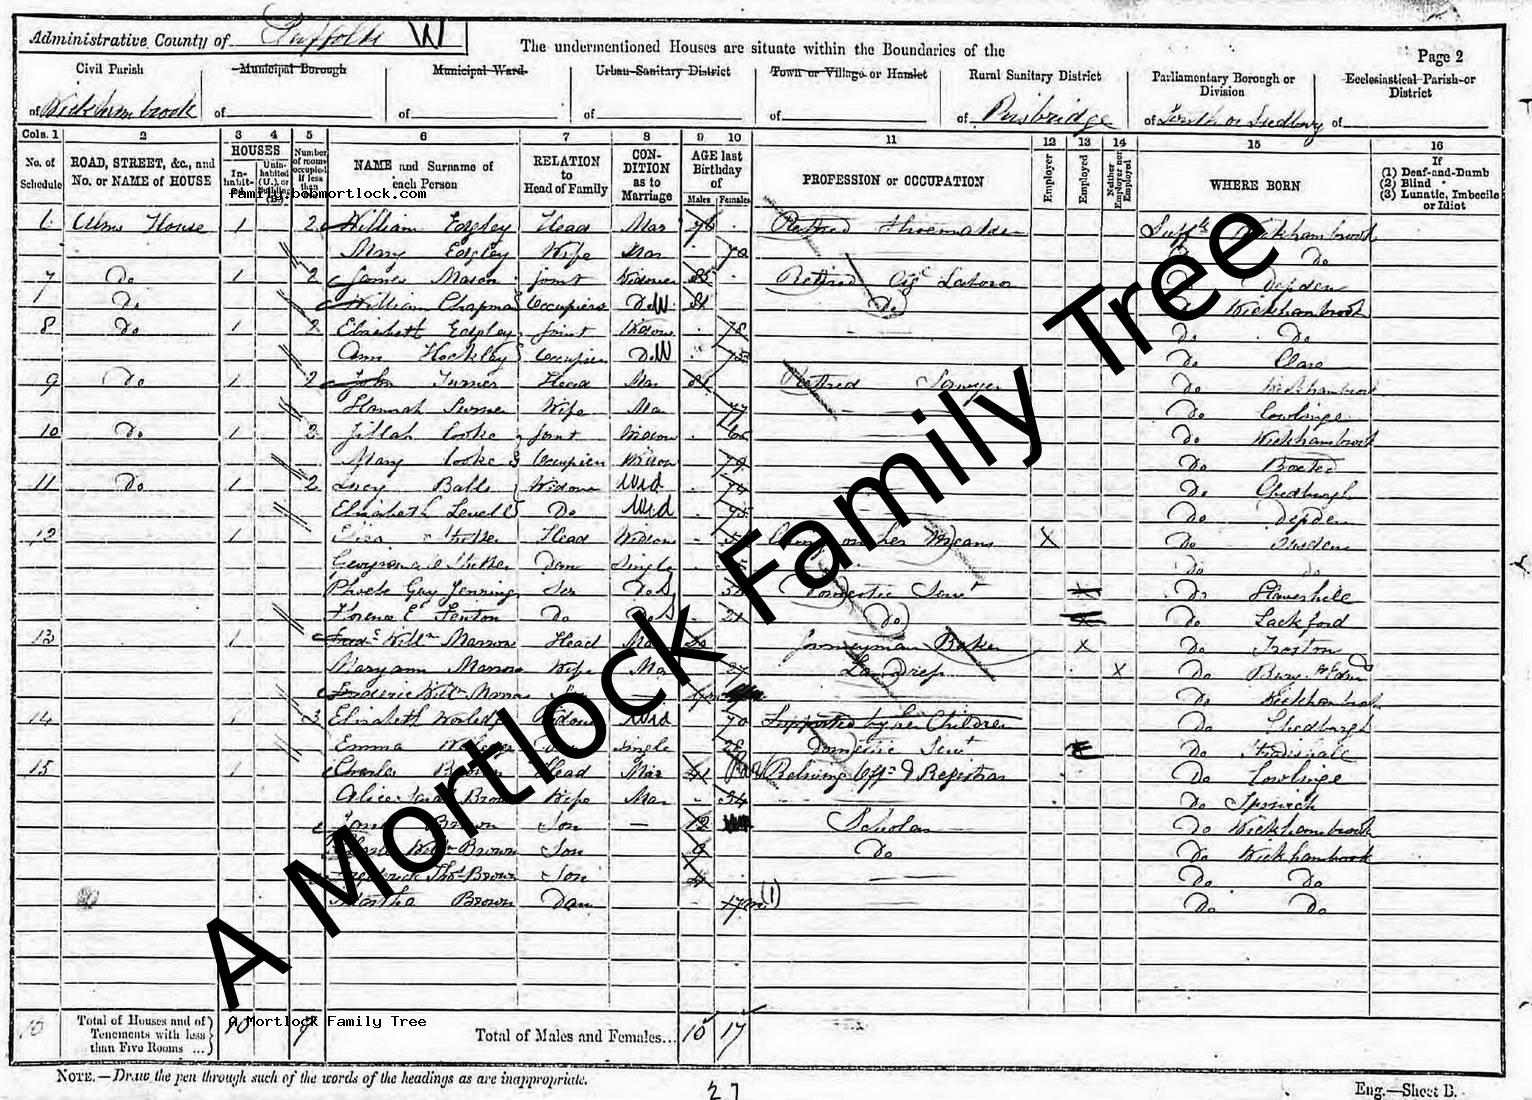 Administrative County of Suffolk W
The undermentioned Houses are situate within the Boundaries of the
Page 2
Civil Parish Municipal Borough Municipal Ward Urban Sanitary District Town or Village or Hamlet Rural Sanitary District Parliamentary Borough or Division Ecclesiastical Parish or District
of Wickhambrook of of of of of Risbridge of of
Cols. 1 2 3 4 5 6 7 8 9 10 11 12 13 14 15 16
No. of Schedule ROAD, STREET, &c., and No. or NAME of HOUSE HOUSES Inhabited Uninhabited (U.), or Building (B.) Number of rooms occupied if less than NAME and Surname of each Person RELATION to Head of Family CONDITION as to Marriage AGE last Birthday of Males Females PROFESSION or OCCUPATION Employer Employed Neither nor Employed WHERE BORN If (1) Deaf-and-Dumb (2) Blind (3) Lunatic, Imbecile or Idiot
family.bobmortlock.com
6 Alms House 1 2 William Edgley Head Mar 76 Retired Shoemaker Suffk Wickhambrook
Mary Edgley Wife Mar Do Do
7 Do 1 2 James Mason Joint Widower 85 Retired Ag Labourer Do Depden
Do William Chapman Occupiers Do W 81 Do Do Wickhambrook
8 Do 1 2 Elizabeth Edgley Joint Widow 78 Do Do
Ann Hockley Occupiers Do W Do Clare
9 Do 1 2 John Turner Head Mar 81 Retired Sawyer Do Wickhambrook
Hannah Turner Wife Mar 77 Do Cowlinge
10 Do 1 2 Zillah Cooke Joint Widow Do Wickhambrook
Mary Cooke Occupiers Widow 79 Do Boxted
11 Do 1 2 Lucy Balls Widow Wid 74 Do Chedburgh
Elizabeth Do Wid 75 Do Depden
12 1 Eliza Head Widow Living on her Means X Do Ousden
Daur Single Do Do
Phoebe Gay Jennings Ser Do S Domestic Servt X Do Haverhill
Florence E Fenton Do Do S 21 Do X Do Lackford
13 1 Fredc Willm Marrow Head Mar Journeyman Baker X Do Troston
Maryann Marrow Wife Mar 27 X Do Bury St Edm
Frederic Willm Marrow Son Do Wickhambrook
14 1 3 Elizabeth Widow Wid 70 Supported by her Children Do Chedburgh
Emma Single 28 Domestic Servt X Do Stradishall
15 1 Charles Brown Head Mar 41 Relieving Offr & Registrar Do Cowlinge
Alice Sarah Brown Wife Mar 34 Do Ipswich
Brown Son 12 Scholar Do Wickhambrook
Charles Willm Brown Son 9 Do Do Wickhambrook
Frederick Thos Brown Son 4 Do Do
Martha Brown Daur 17m (1) Do Do
10 Total of Houses and of Tenements with less than Five Rooms ... 10 9 Total of Males and Females... 10 17
A Mortlock Family Tree
A Mortlock Family Tree
NOTE.—Draw the pen through such of the words of the headings as are inappropriate.
27
Eng.—Sheet B.